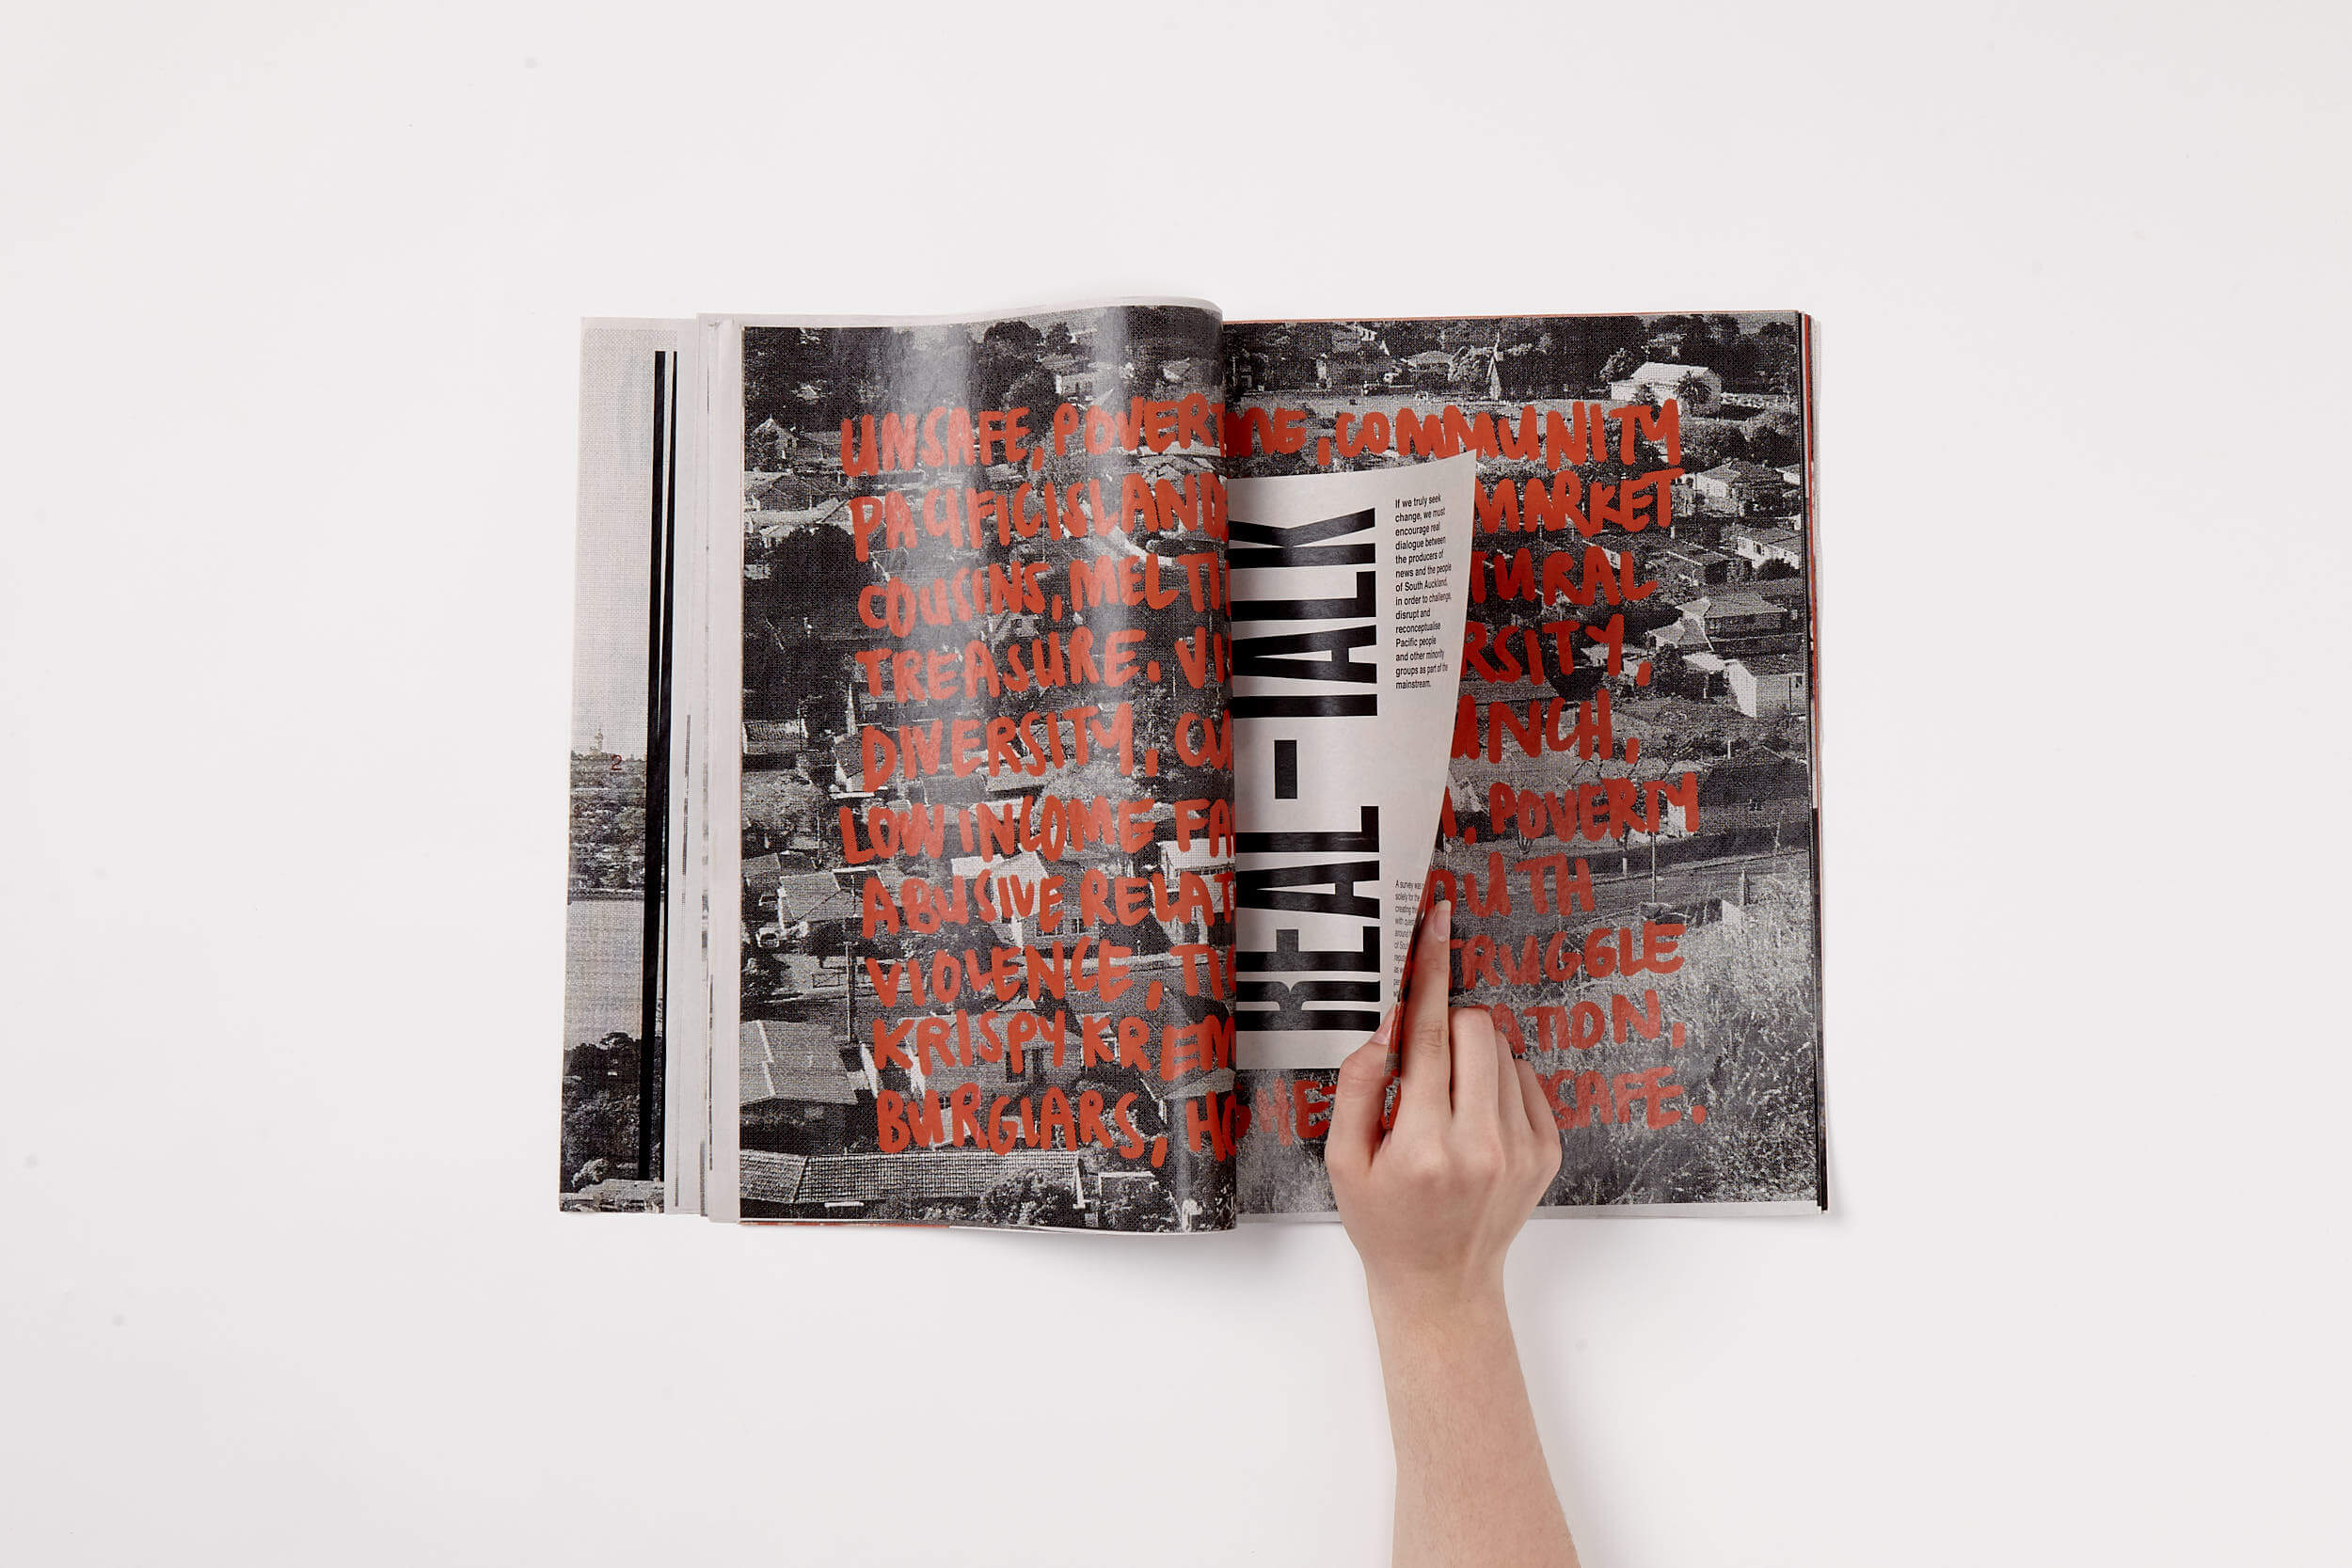 2
UNSAFE, POVER ME, COMMUNITY
PACIFIC ISLAND MARKET
COUSINS, MELTI TURAL
TREASURE. VI RSITY,
DIVERSITY, CU UNCH,
LOW INCOME FA , POVERTY
ABUSIVE RELAT OUTH
VIOLENCE, TRUGGLE
KRISPY KREM ATION,
BURGLARS, HOME SAFE.
REAL-TALK
If we truly seek
change, we must
encourage real
dialogue between
the producers of
news and the people
of South Auckland,
in order to challenge,
disrupt and
reconceptualise
Pacific people
and other minority
groups as part of the
mainstream.
A survey was
solely for the
creating